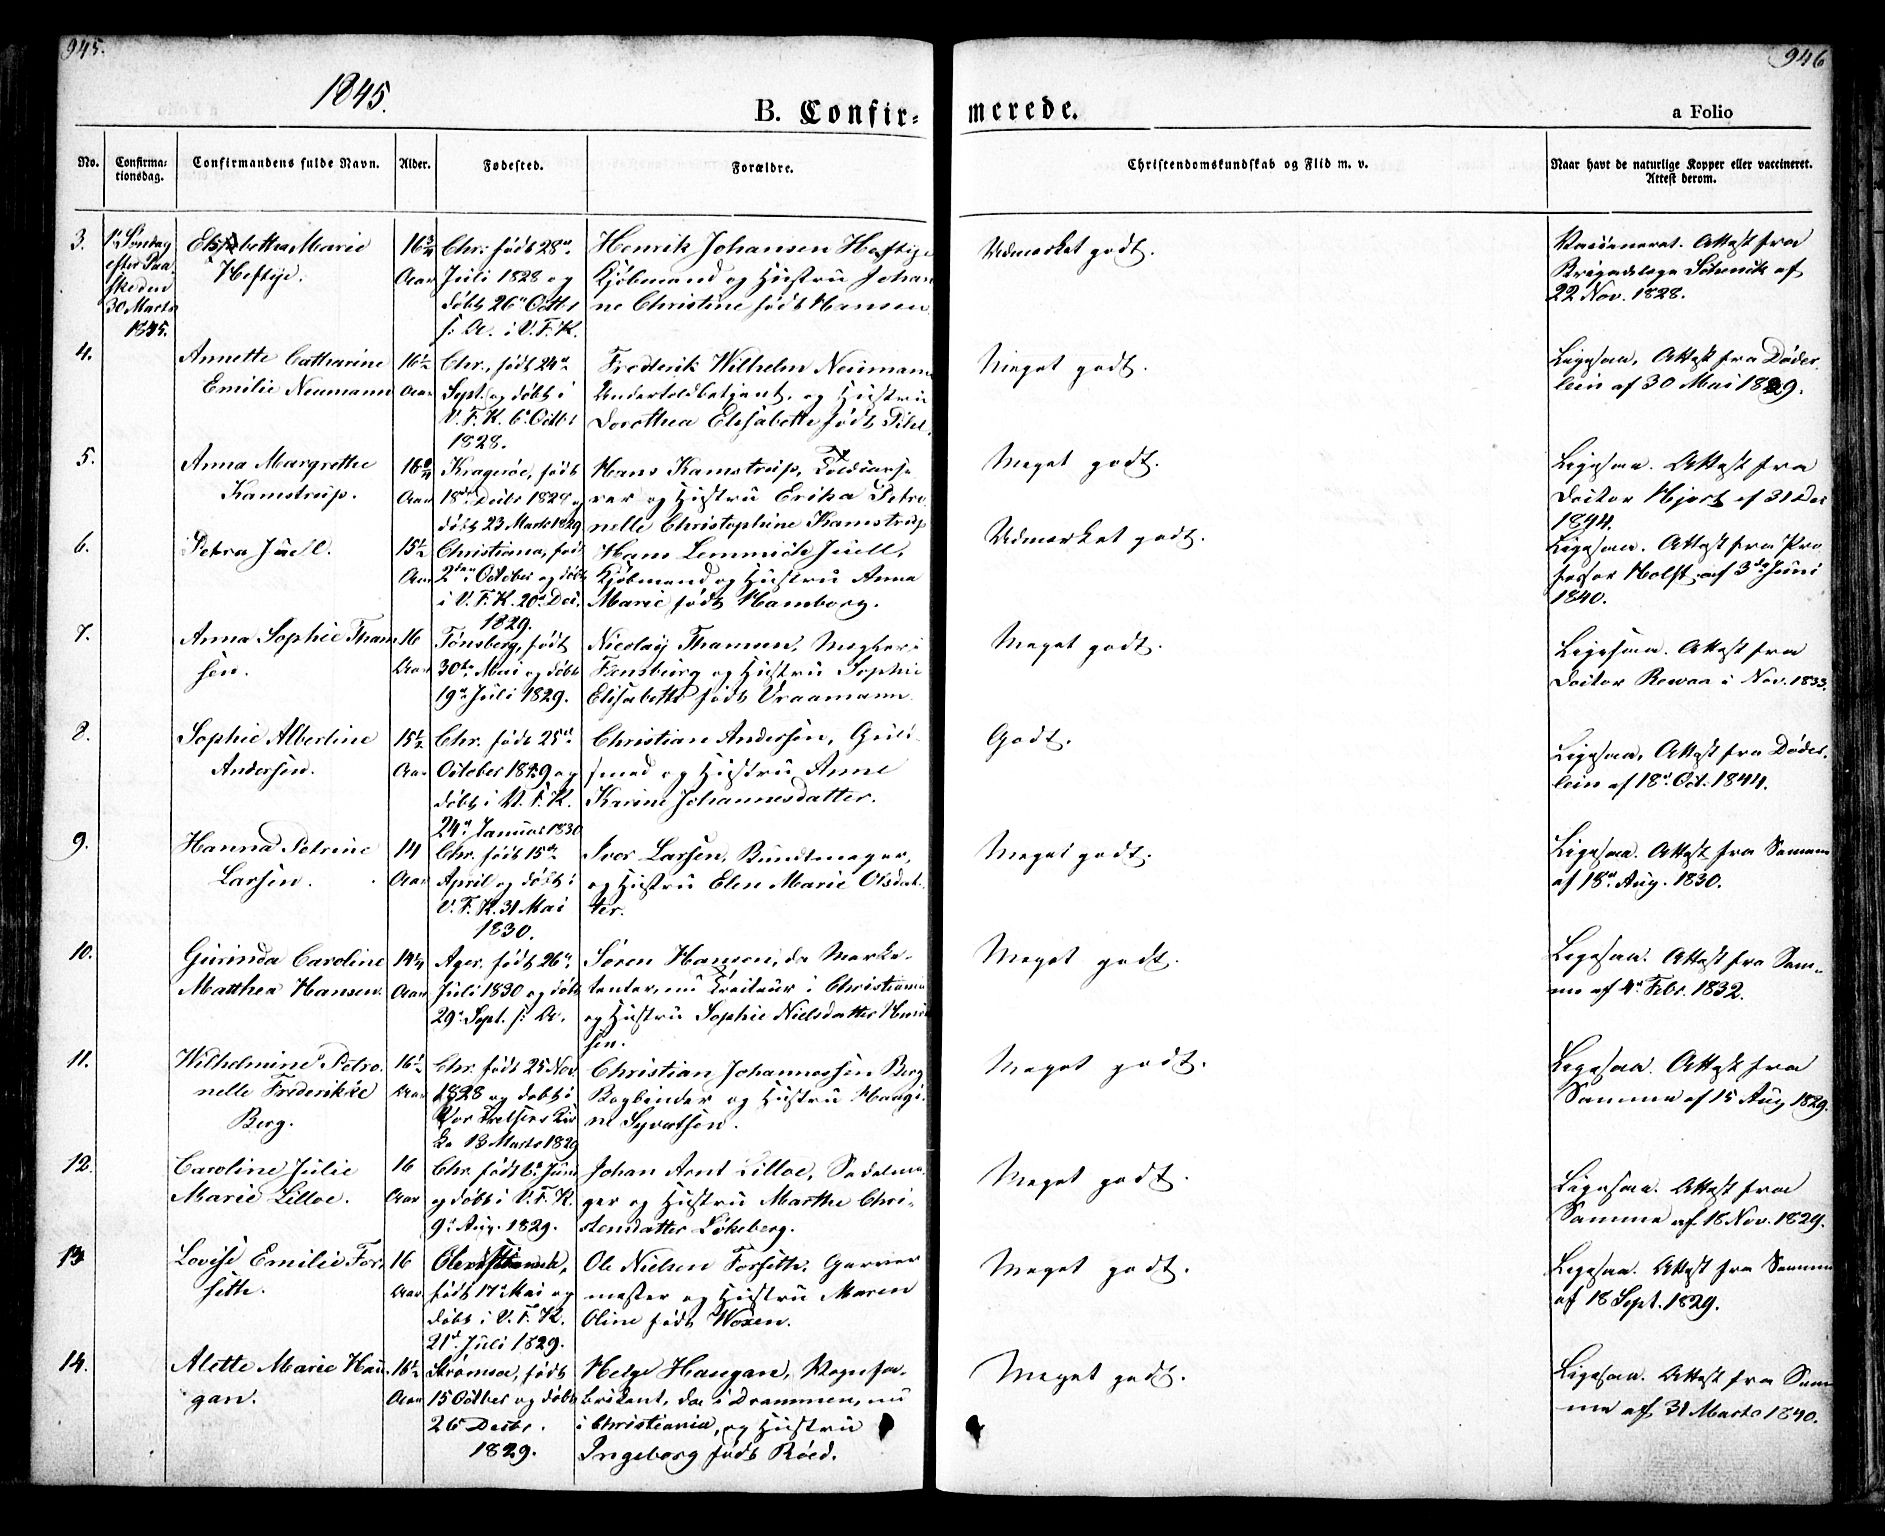 945.
946
1845.
B. Confir=
merede.
a Folio
No.
Confirma-
tionsdag.
Confirmandens fulde Navn.
Alder.
Fødested.
Forældre.
Christendomskundskab og Flid m. v.
Naar havt de naturlige Kopper eller vaccineret.
Attest derom.
3.
1ste Søndag
efter Paa-
ske den
30 Marts
1845.
Elisabetha Marie
Heftye.
16 3/4
Aar
Chr: født 28de
Juli 1828 og
døbt 26de Octbr
s: A. i V. F. K.
Henrik Johansen Heftye
Kjøbmand og Hustru Johan
ne Christine født Hansen
Udmærket godt.
Vaccineret. Attest fra
Brigadelæge af
22 Nov. 1828.
4.
Annette Catharine
Emilie Neumann
16 1/2
Aar
Chr., født 24de
Sept. og døbt i
V. F. K. 6te Octbr
1828.
Frederik Wilhelm Neumann
Undertoldbetjent, og Hustru
Dorothea Elisabethe født Pihl.
Meget godt.
Ligesaa, Attest fra Døder
lein af 30 Mai 1829.
5.
Anna Margrethe
Kamstrup.
16
Aar
Kragerøe, født
18de Decbr 1828 og
døbt 23 Marts 1829
Hans Kamstrup, Toldcasse
rer og Hustru Erika Petro
nelle Christophine Kamstrup
Meget godt.
Ligesaa. Attest fra
Doctor Hjort af 31 Dec
1844.
6.
Petra Juell.
15 1/2
Aar
Christiania, født
2den October og døbt
i V. F. K. 20de Dec.
1829.
Hans Lemmich Juell,
Kjøbmand og Hustru Anna
Marie født Hamborg.
Udmærket godt.
Ligesaa. Attest fra Pro
fessor Holst af 3die Juni
1840.
7.
Anna Sophie Tham
sen.
16
Aar
Tønsberg, født
30te Mai og døbt
19de Juli 1829.
Nicolay Thamsen, Mægler i
Tønsberg og Hustru Sophie
Elisabeth født Vraamann
Meget godt.
Ligesaa. Attest fra
Doctor i Nov. 1833.
8.
Sophie Albertine
Andersen.
15 1/2
Aar
Chr. født 25de
October 1829 og
døbt i V. F. K.
24de Januar 1830
Christian Andersen, Guld-
smed og Hustru Anne
Karine Johannesdatter.
Godt.
Ligesaa, Attest fra Døder
lein af 18de Oct. 1844.
9.
Hanna Petrine
Larsen.
14
Aar
Chr. født 15de
April og døbt i
V. F. K. 31 Mai
1830.
Iver Larsen, Bundtmager,
og Hustru Elen Marie Olsdat-
ter.
Meget godt.
Ligesaa. Attest fra Samme
af 18de Aug. 1830.
10.
Gurinda Caroline
Matthea Hansen.
14 1/2
Aar
Ager. født 26de
Juli 1830 og døbt
29de Sept. s: A.
Søren Hansen, da Marke-
tenter, nu Traiteur i Christiania
og Hustru Sophie Nielsdatter Han
sen.
Meget godt.
Ligesaa. Attest fra Sam-
me af 4de Febr. 1832.
11.
Wilhelmine Petro
nelle Frederikke
Berg.
16 1/2
Aar
Chr. født 25 Nov
1828 og døbt i
Vor Frelsers Kir
ke 13 Marts 1829
Christian Johannessen Berg
Bogbinder og Hustru
Meget godt.
Ligesaa. Attest fra
Samme af 15 Aug 1829.
12.
Caroline Julie
Marie Lilloe.
16
Aar
Chr. født 6te Juni
og døbt i V. F. K.
9de Aug. 1829.
Johan Arnt Lilloe, Sadelma
ger og Hustru Marthe Chri-
stensdatter Lökeberg.
Meget godt.
Ligesaa. Attest fra
Samme af 18 Nov. 1829.
13
Lovise Emilie For
sette.
16
Aar
født 17de Mai og
døbt i V. F. K.
21de Juli 1829.
Ole Nielsen Forsette, Garver
mester og Hustru Maren
Oline født Woxen.
Meget godt.
Ligesaa. Attest fra Samme
af 18 Sept. 1829.
14.
Alette Marie Hau
gan.
16 1/2
Aar
Strømsøe, født
15 October og døbt
26 Decbr.
1829.
Helge Haugan, Vognfa-
brikant, da i Drammen, nu
i Christiania, og Hustru
Ingeborg født Röed.
Meget godt.
Ligesaa. Attest fra Sam
me af 31 Marts 1840.